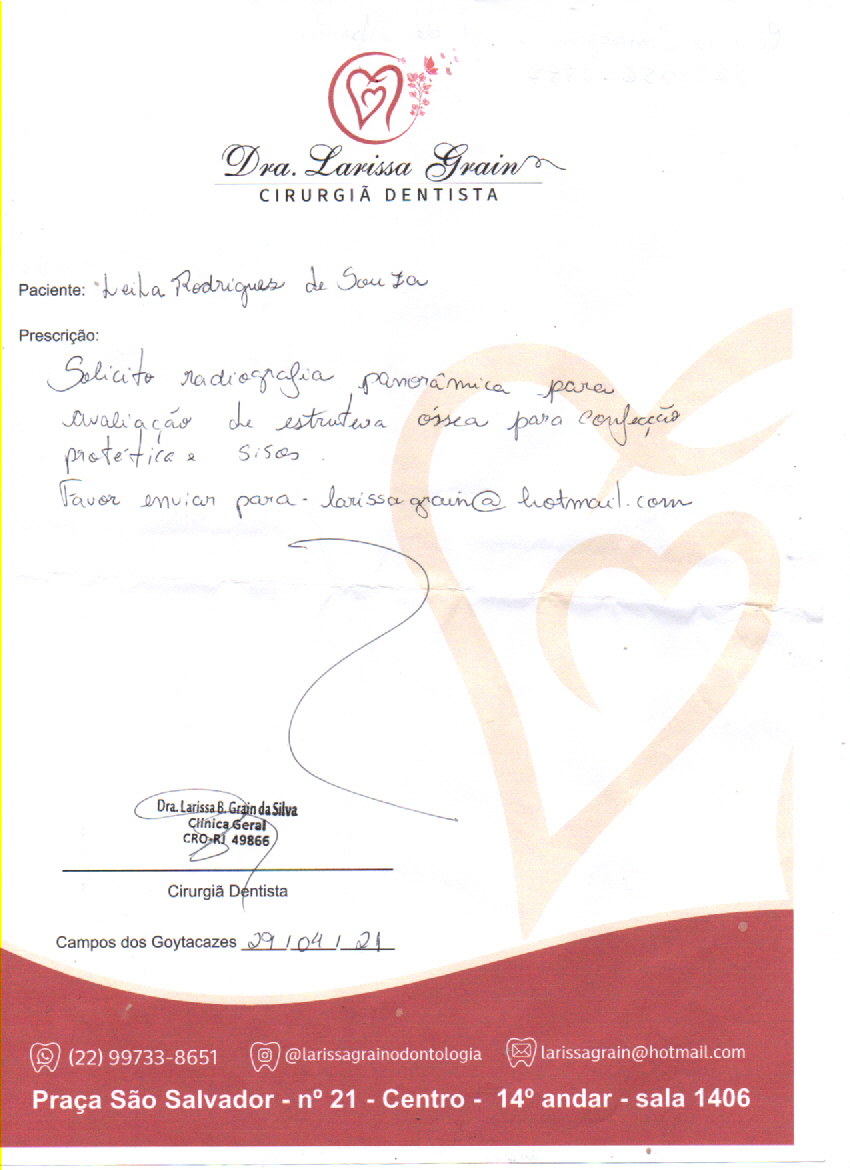 Dra. Larissa Grain
CIRURGIÃ DENTISTA
Paciente: Leila Rodrigues de Souza
Prescrição:
Solicito radiografia panorâmica para
avaliação de estrutura óssea para confecção
protética e sisos.
Favor enviar para - larissagrain@hotmail.com
Dra. Larissa B. Grain da Silva
Clínica Geral
CRO-RJ 49866
Cirurgiã Dentista
Campos dos Goytacazes 29/04/21
(22) 99733-8651 @larissagrainodontologia larissagrain@hotmail.com
Praça São Salvador - nº 21 - Centro - 14º andar - sala 1406